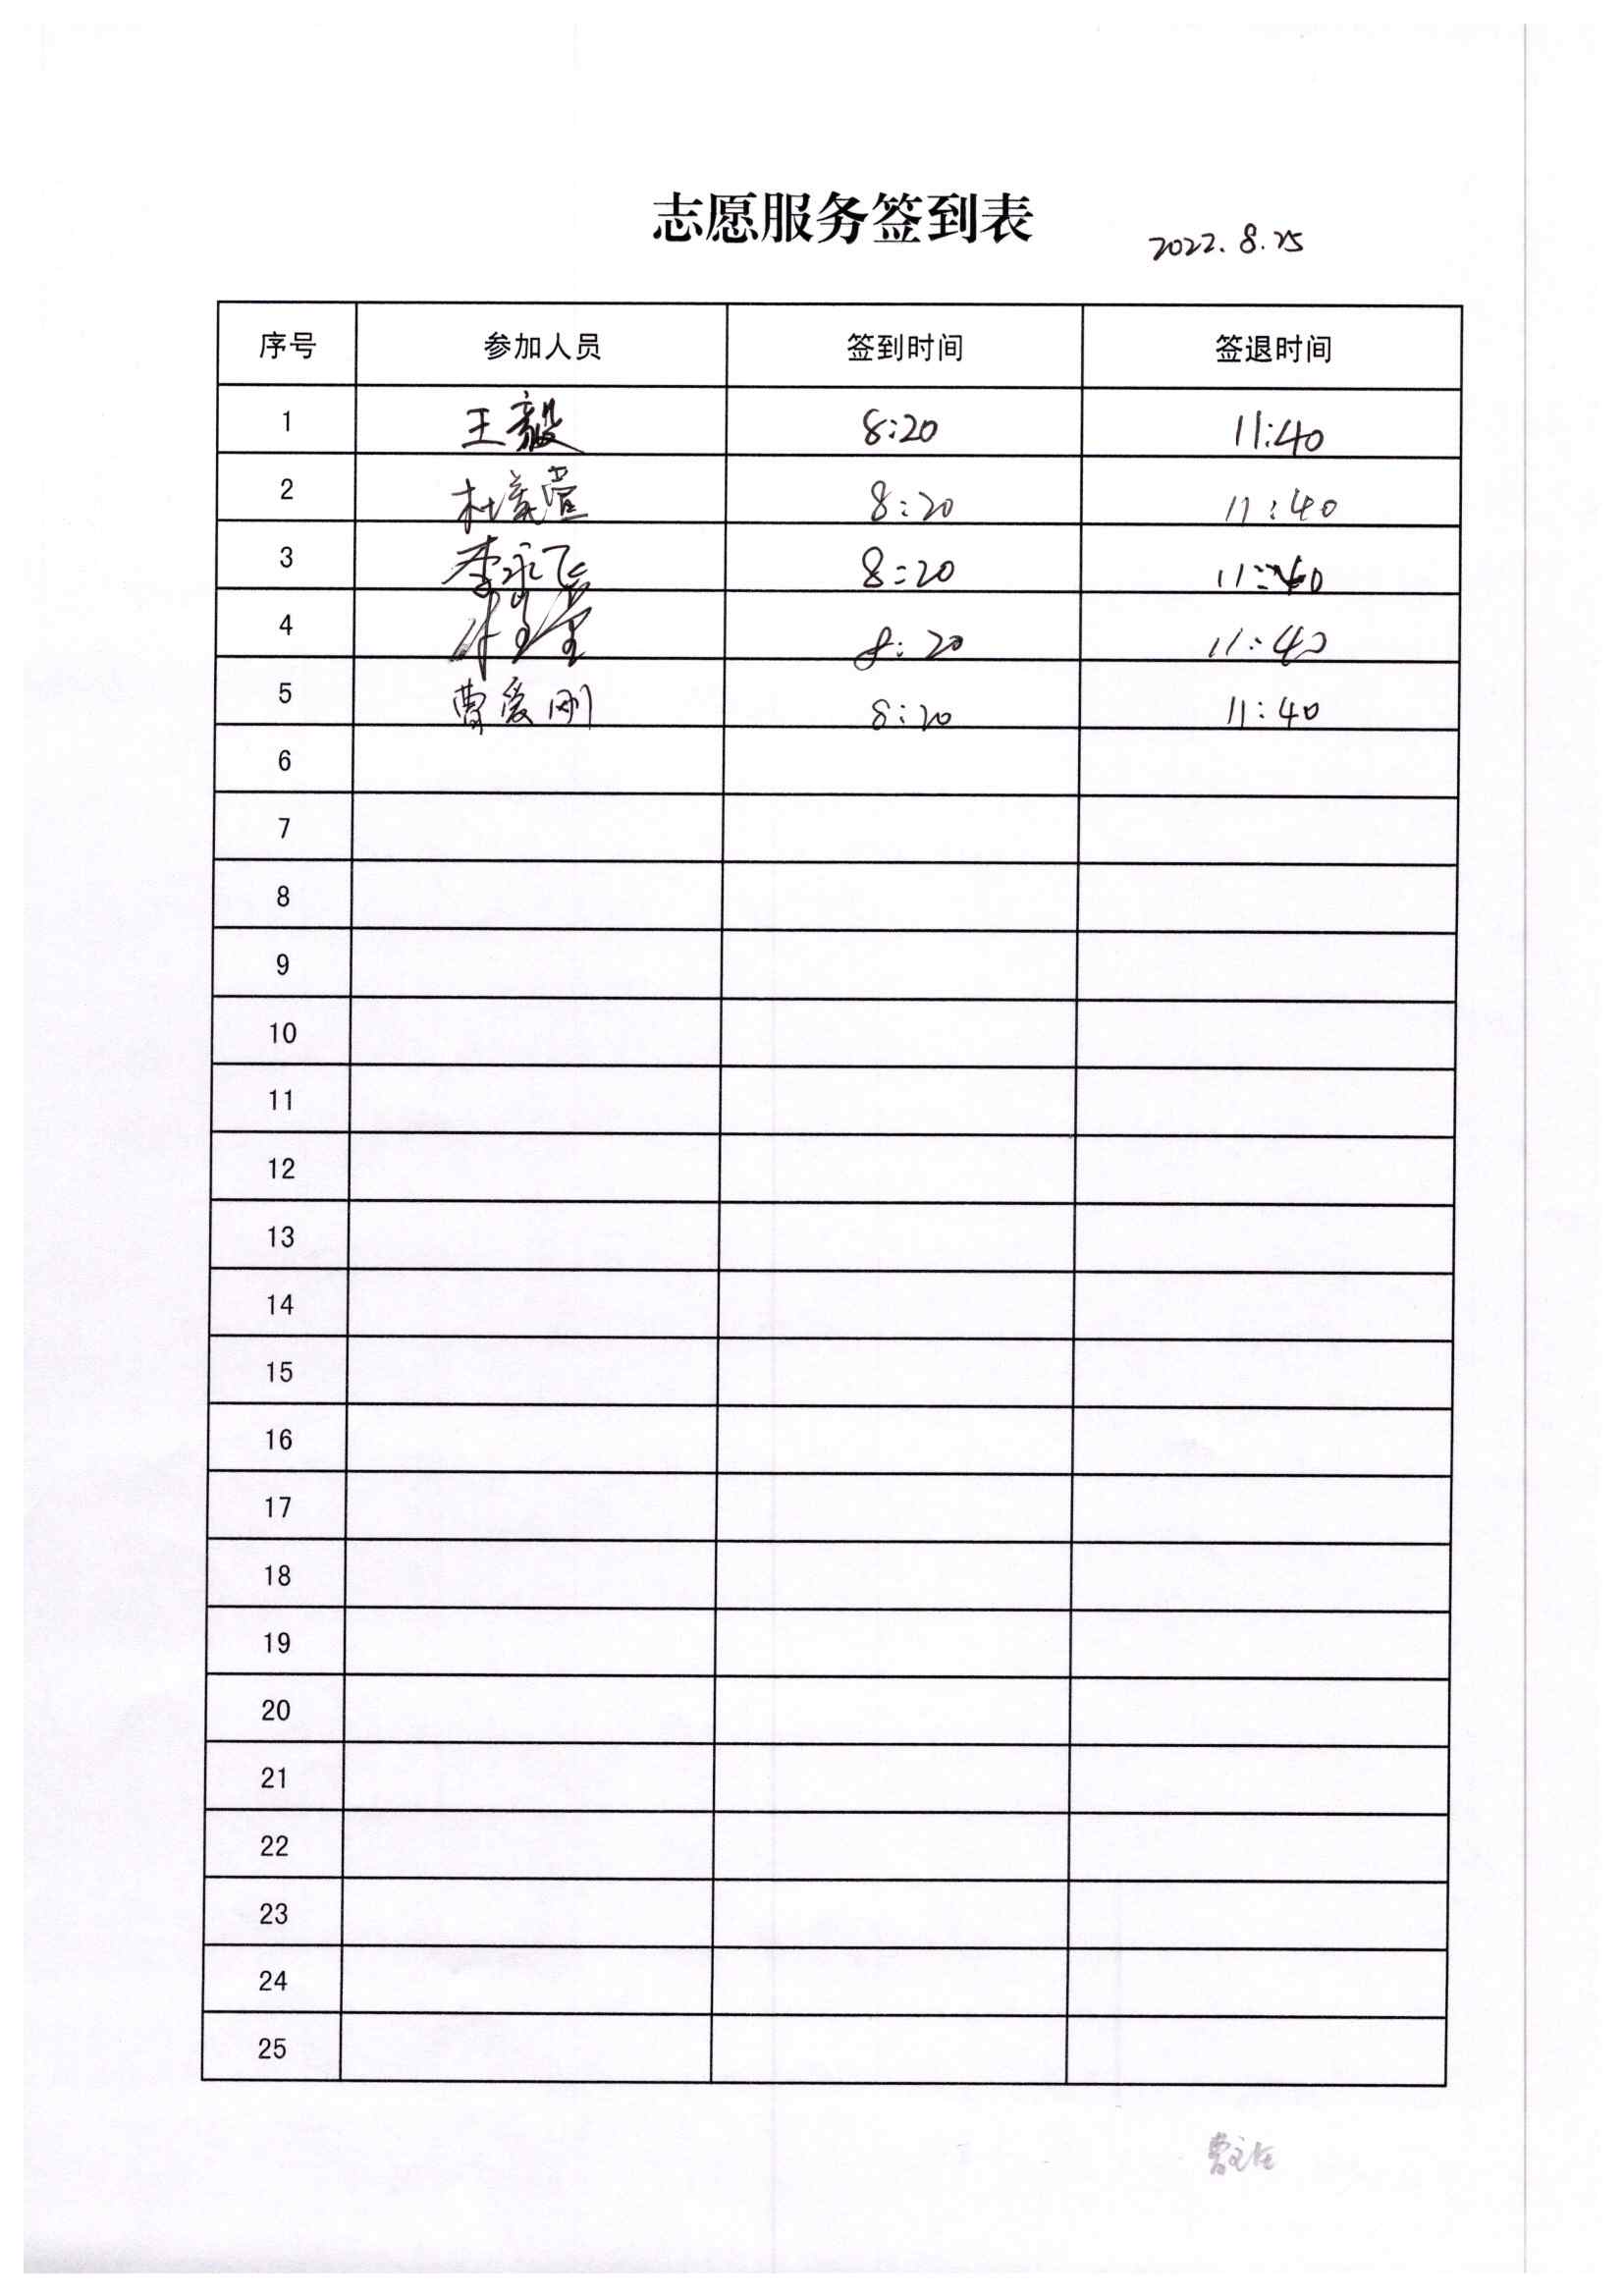 志愿服务签到表
2022.8.25
序号 参加人员 签到时间 签退时间
1 王毅 8:20 11:40
2 杜 萱 8:20 11:40
3 李永飞 8:20 11:40
4 8:20 11:40
5 曹爱刚 8:20 11:40
6
7
8
9
10
11
12
13
14
15
16
17
18
19
20
21
22
23
24
25
曹主任